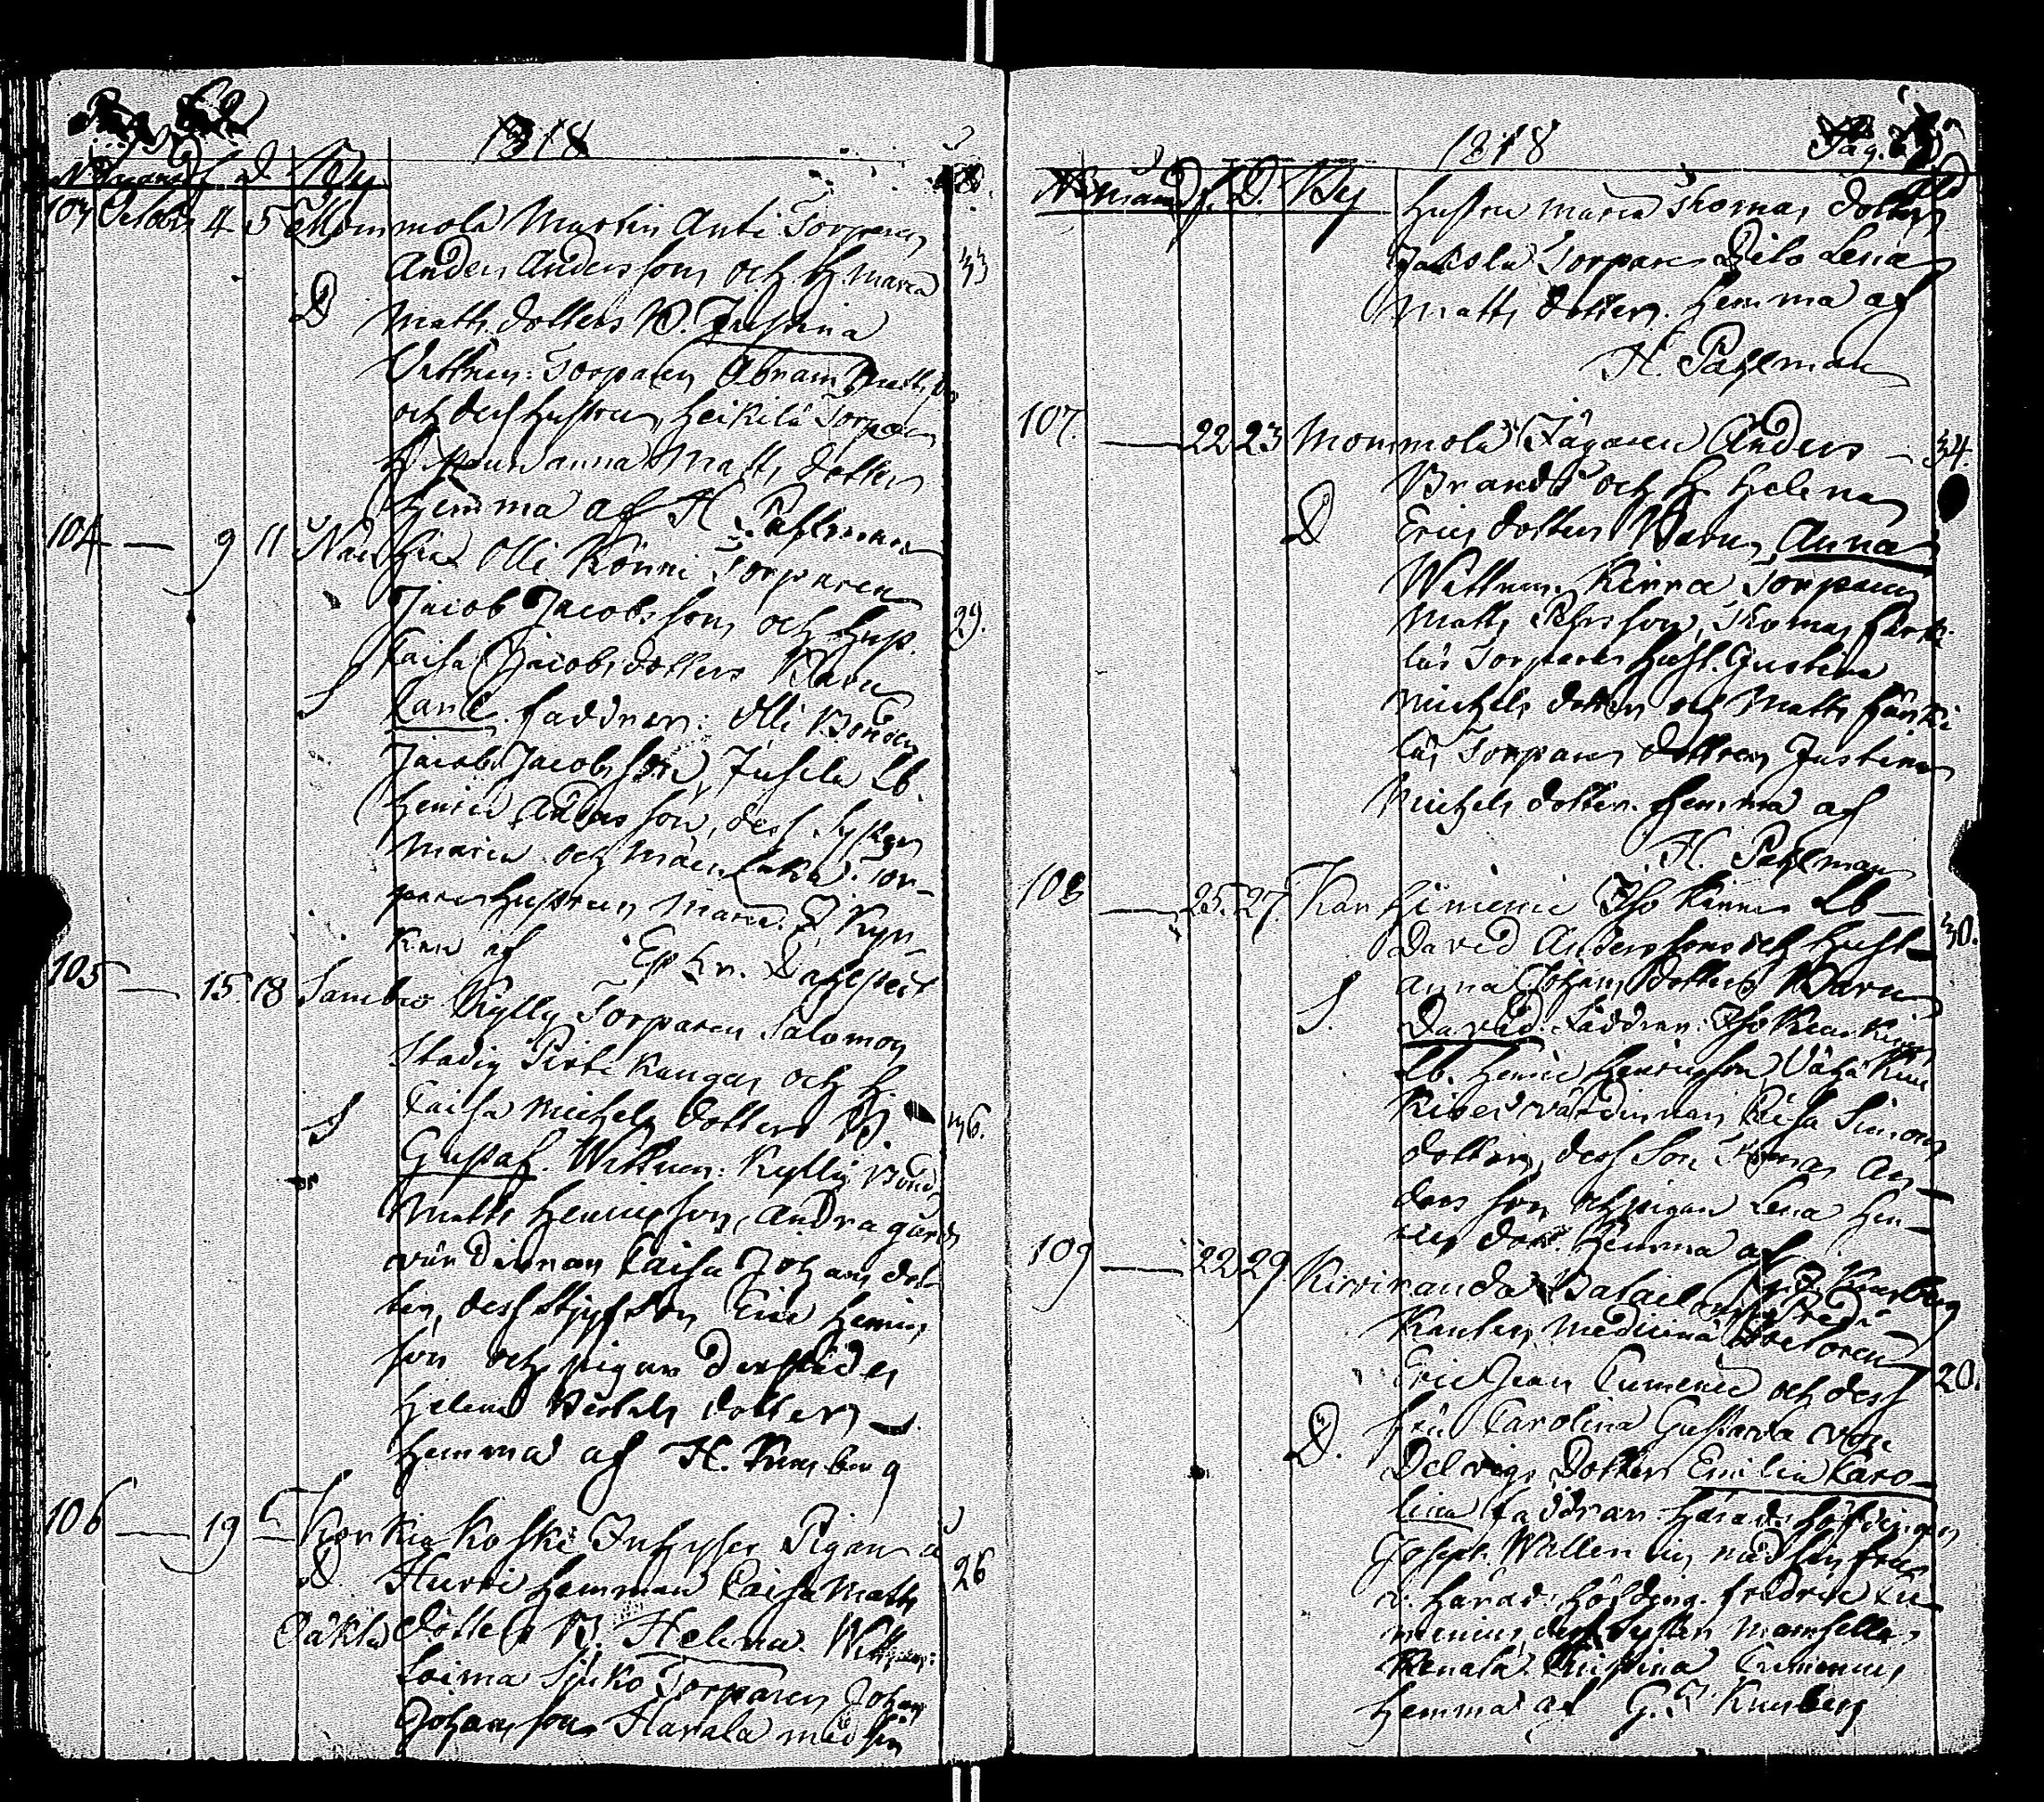 1818
N Månad f. D. By
103 Octobr 4 5 Mommola Martin Anti Torparen
Anders Anderssons och H. Maria 33
D Matts dotters B. Justina
Vittnen: Torparen Abram Matts son
och dess hustru, Heikilä Torparen
hustrun Anna Matts dotter
hemma af H. Pahlman
104 — 9 11 Olli Könni Torparen
Jacob Jacobssons och hust. 29.
Caisa Jacobsdotters Barn
S Carl. faddrar: Olli Bonden
Jacob Jacobsson, Jussila Lb.
Henric Andersson, dess syster
Maria och Tor-
pare hustrun Maria. I Kyr
kan af Dahlstedt
105 — 15. 18 Sambo Kylly Torparen Salomon
Stadig Pirti kangas och H.
Caisa Michels dotters B. 36.
S Gustaf. Wittnen: Kylly Bond.
Matts Henricsson, Andra gårds
värdinnan Caisa Johans dot-
ter, dess styfson Eric Henrics
son och pigan derstädes
Helena dotter
Hemma af H. Kumberg
106 — 19 — Korkia Koski Inhyses Pigan å
D Hurri hemman Caisa Matts 26
Oäkta dotters B. Helena. Wittnen:
Loima Torparen Johan
Johansson Harala med sin
1818 Pag.
N Månad f. D. By
hustru Maria Thomas dotter
Jakola Torpare Lena
Matts dotter. hemma af
H. Pahlman
107. — 22 23 Mommola Jägaren Anders — 34.
Brands och H. Helena
D Erics dotters Barn Anna
Wittnen. Kirra Torparen
Matts Thomas Härki-
läs Torpares hust. Gustava
Michels dotter och Matts Härki
läs Torpares dottren Justina
Michels dotter. hemma af
H. Pahlman
108 — 25. 27. Karhiniemi Iso Lb — 30.
David Anderssons och hust
Anna Johans dotters Barn
S. David. Faddrar: Iso
Lb. Henric Henricsson, Vähä
värdinnan Caisa Simons
dotter, dess son Thomas An-
ders son och pigan Lena Hen-
rics dotr. hemma af
G. I. Kumberg
109 — 22 29. Kirviranda Batailons Predi
kanten, Medicinæ Doctoren
Eric Jean Cumenii och dess 20.
D. Fru Carolina Gustava von
Delvigs Dotter Emilia Caro-
lina faddrar: Häradshöfdingen
Joseph Wallenius med sin fru
v. häradshöfding. Fredric Cu-
menius, dess syster Mamsellen
Renata Christina Cumenius
hemma af G. I. Kumberg